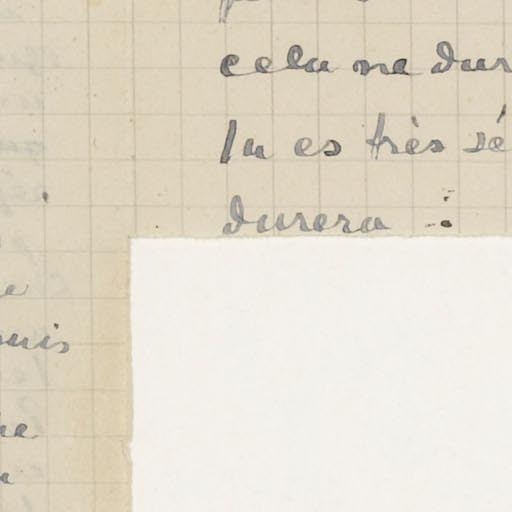 cela ne dur
Tu es très sé
durera :
e
uis
he